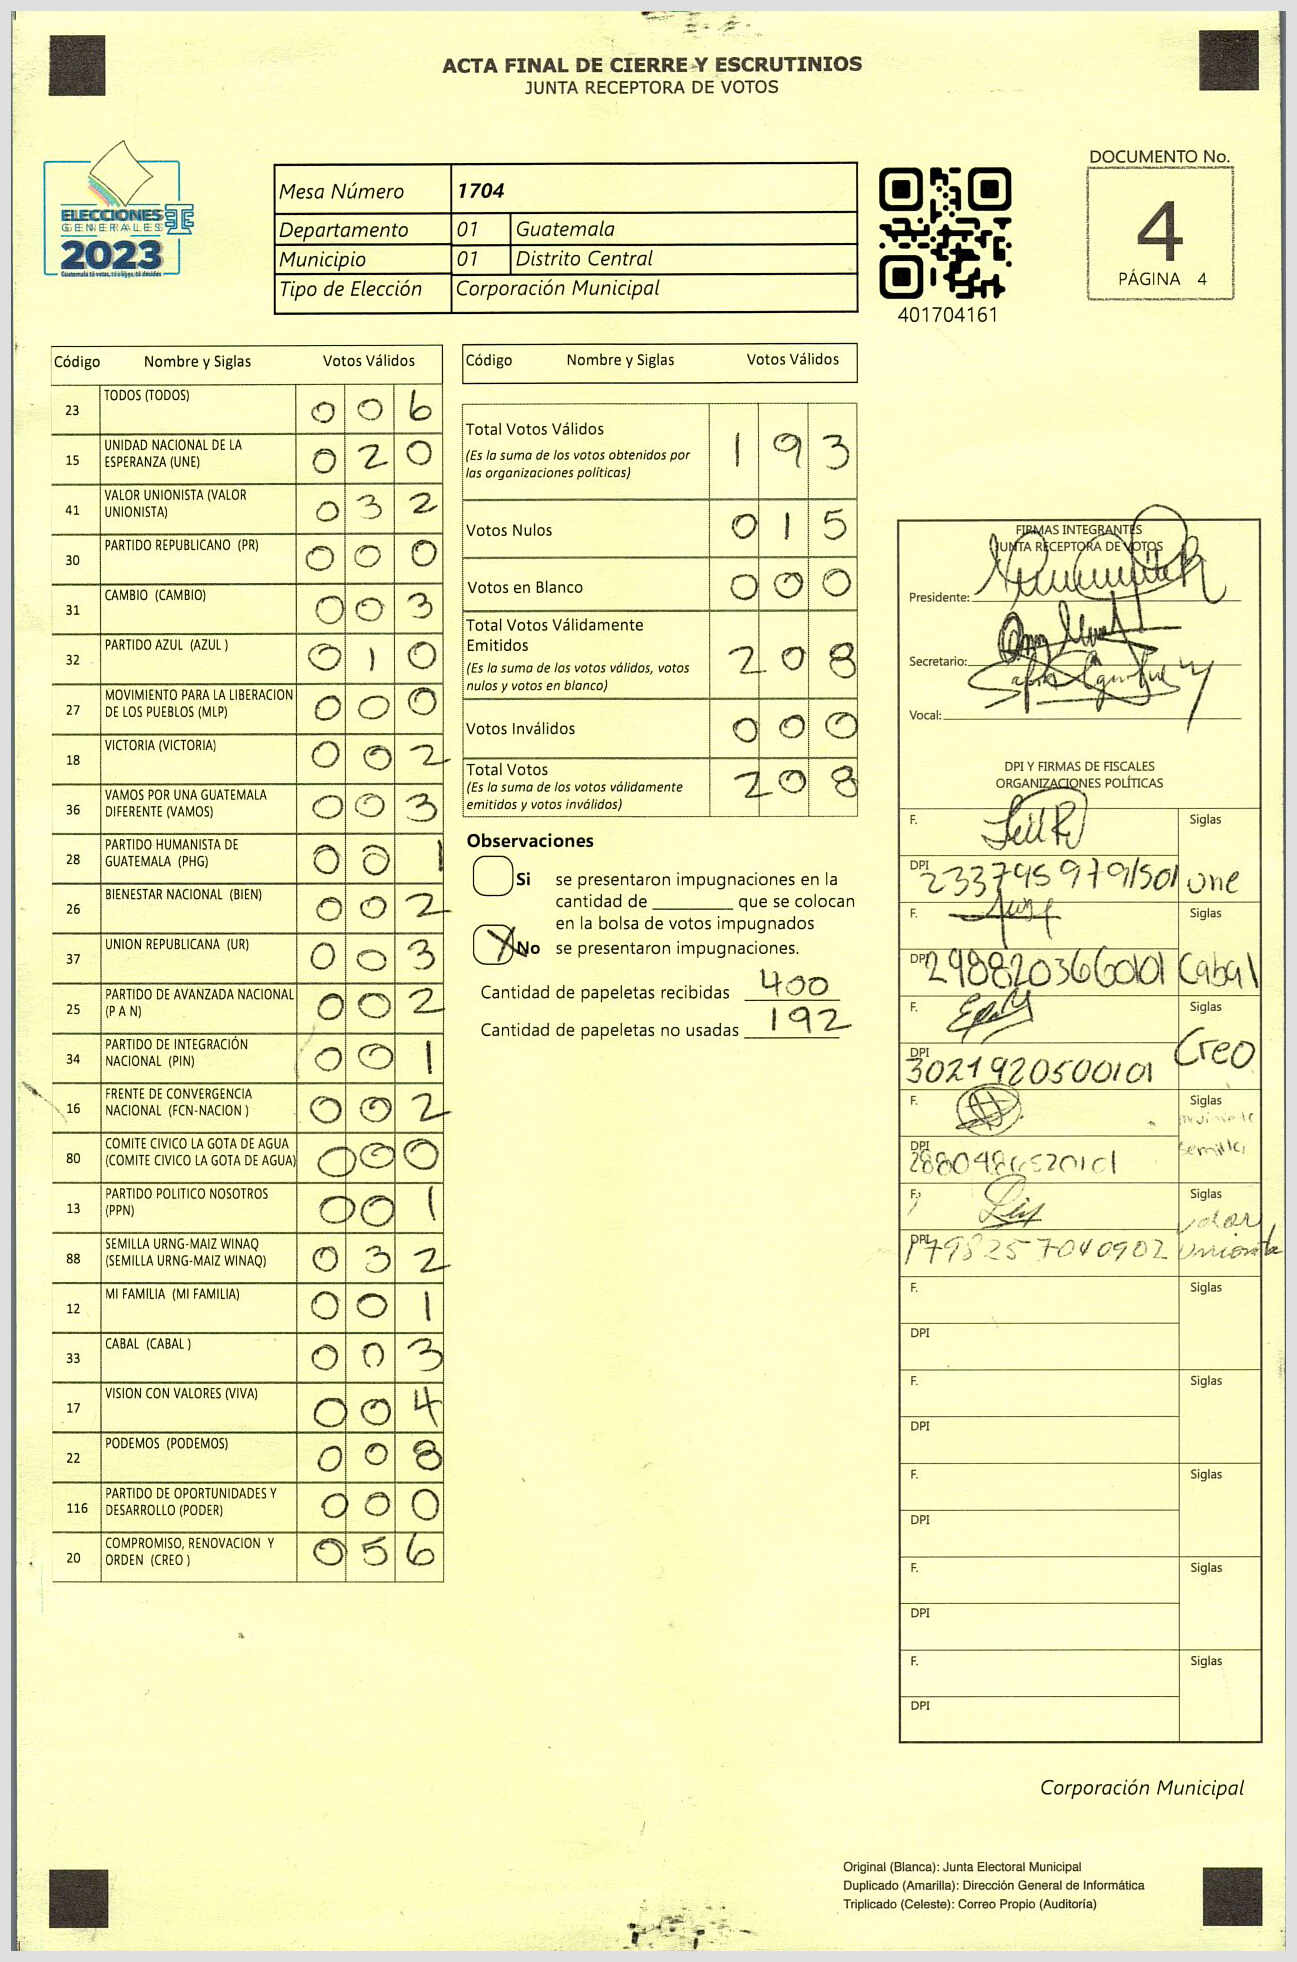 ACTA FINAL DE CIERRE Y ESCRUTINIOS
JUNTA RECEPTORA DE VOTOS
ELECCIONES
GENERALES
2023
Guatemala tú votas, tú eliges, tú decides
Mesa Número 1704
Departamento 01 Guatemala
Municipio 01 Distrito Central
Tipo de Elección Corporación Municipal
401704161
DOCUMENTO No.
4
PÁGINA 4
Código Nombre y Siglas Votos Válidos
23 TODOS (TODOS) 0 0 6
15 UNIDAD NACIONAL DE LA ESPERANZA (UNE) 0 2 0
41 VALOR UNIONISTA (VALOR UNIONISTA) 0 3 2
30 PARTIDO REPUBLICANO (PR) 0 0 0
31 CAMBIO (CAMBIO) 0 0 3
32 PARTIDO AZUL (AZUL ) 0 1 0
27 MOVIMIENTO PARA LA LIBERACION DE LOS PUEBLOS (MLP) 0 0 0
18 VICTORIA (VICTORIA) 0 0 2
36 VAMOS POR UNA GUATEMALA DIFERENTE (VAMOS) 0 0 3
28 PARTIDO HUMANISTA DE GUATEMALA (PHG) 0 0 1
26 BIENESTAR NACIONAL (BIEN) 0 0 2
37 UNION REPUBLICANA (UR) 0 0 3
25 PARTIDO DE AVANZADA NACIONAL (P A N) 0 0 2
34 PARTIDO DE INTEGRACIÓN NACIONAL (PIN) 0 0 1
16 FRENTE DE CONVERGENCIA NACIONAL (FCN-NACION ) 0 0 2
80 COMITE CIVICO LA GOTA DE AGUA (COMITE CIVICO LA GOTA DE AGUA) 0 0 0
13 PARTIDO POLITICO NOSOTROS (PPN) 0 0 1
88 SEMILLA URNG-MAIZ WINAQ (SEMILLA URNG-MAIZ WINAQ) 0 3 2
12 MI FAMILIA (MI FAMILIA) 0 0 1
33 CABAL (CABAL ) 0 0 3
17 VISION CON VALORES (VIVA) 0 0 4
22 PODEMOS (PODEMOS) 0 0 8
116 PARTIDO DE OPORTUNIDADES Y DESARROLLO (PODER) 0 0 0
20 COMPROMISO, RENOVACION Y ORDEN (CREO ) 0 5 6
Código Nombre y Siglas Votos Válidos
Total Votos Válidos 1 9 3
(Es la suma de los votos obtenidos por
las organizaciones políticas)
Votos Nulos 0 1 5
Votos en Blanco 0 0 0
Total Votos Válidamente
Emitidos 2 0 8
(Es la suma de los votos válidos, votos
nulos y votos en blanco)
Votos Inválidos 0 0 0
Total Votos 2 0 8
(Es la suma de los votos válidamente
emitidos y votos inválidos)
Observaciones
Si se presentaron impugnaciones en la
cantidad de ________ que se colocan
en la bolsa de votos impugnados
X No se presentaron impugnaciones.
Cantidad de papeletas recibidas 400
Cantidad de papeletas no usadas 192
FIRMAS INTEGRANTES
JUNTA RECEPTORA DE VOTOS
Presidente:
Secretario:
Vocal:
DPI Y FIRMAS DE FISCALES
ORGANIZACIONES POLÍTICAS
F. Siglas
DPI 2337959791501 une
F. Siglas
DPI 2988203660101 Cabal
F. Siglas
DPI 3021920500101 Creo
F. Siglas
DPI semilla
F. Siglas
DPI 1798257040902 Valor Unionista
F. Siglas
DPI
F. Siglas
DPI
F. Siglas
DPI
F. Siglas
DPI
F. Siglas
DPI
Corporación Municipal
Original (Blanca): Junta Electoral Municipal
Duplicado (Amarilla): Dirección General de Informática
Triplicado (Celeste): Correo Propio (Auditoría)